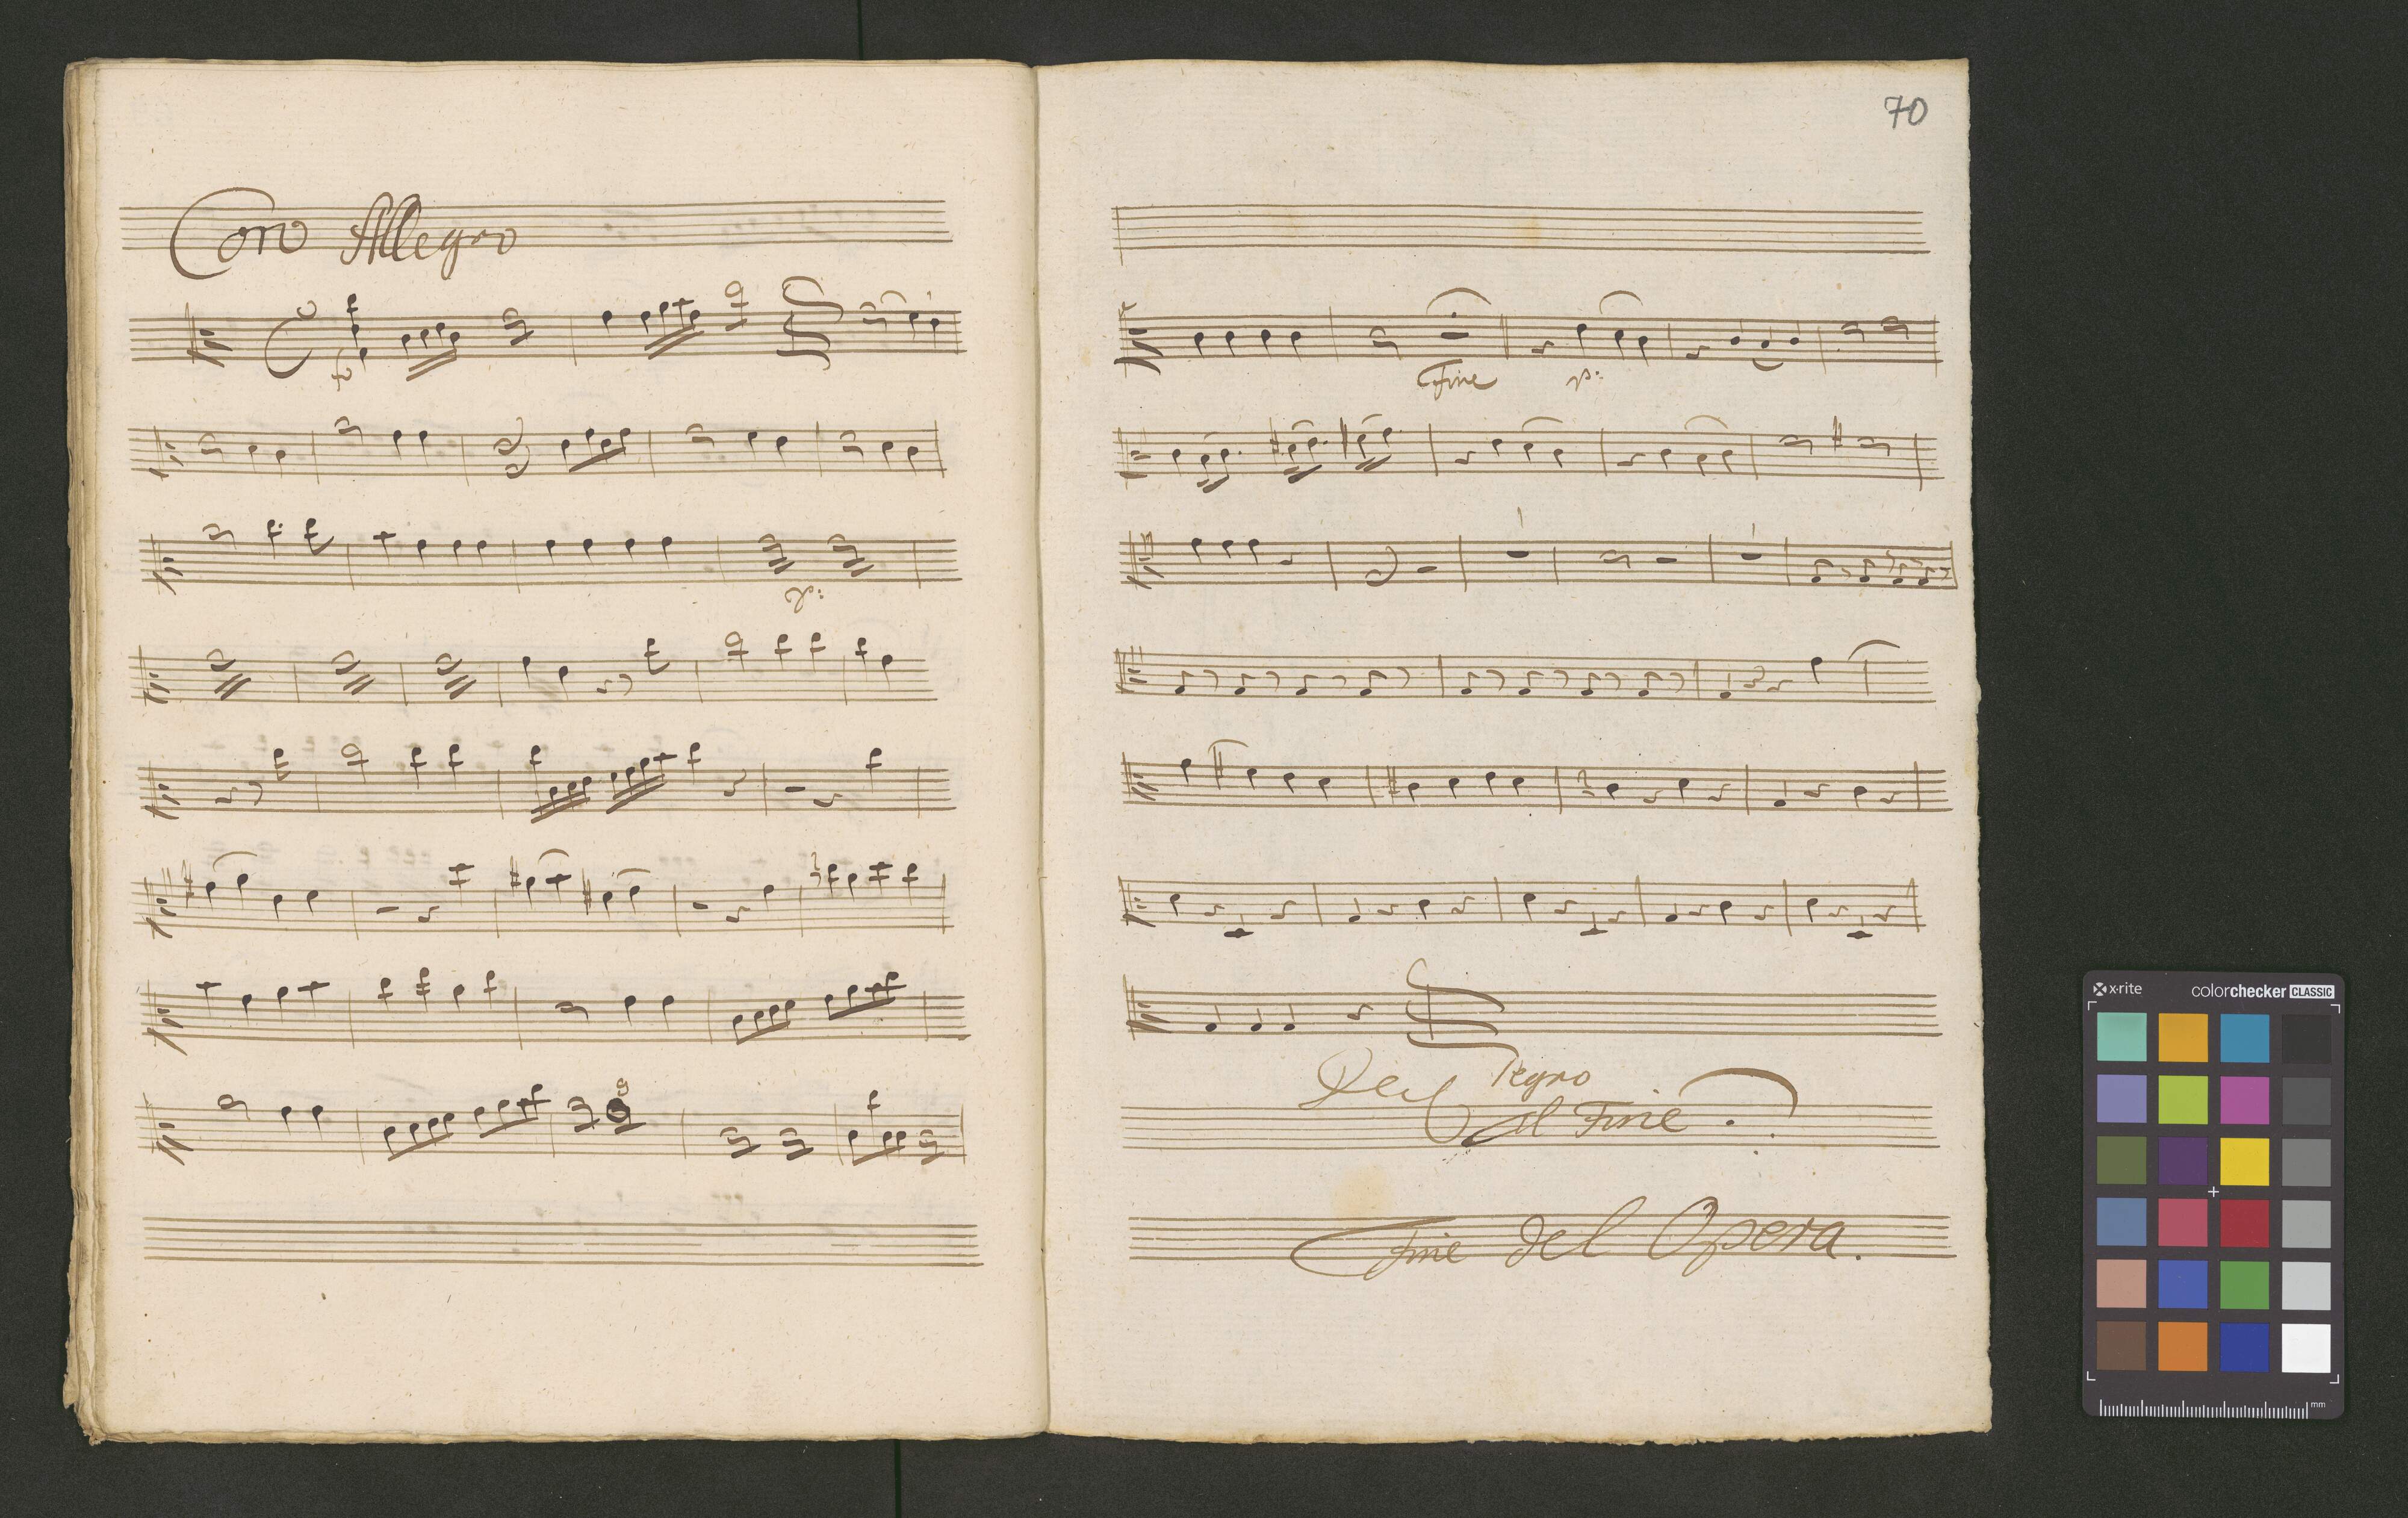 Coro Allegro
f
p:
70
Fine p:
Del Segno
al Fine.
Fine del Opera.
x-rite colorchecker CLASSIC
mm